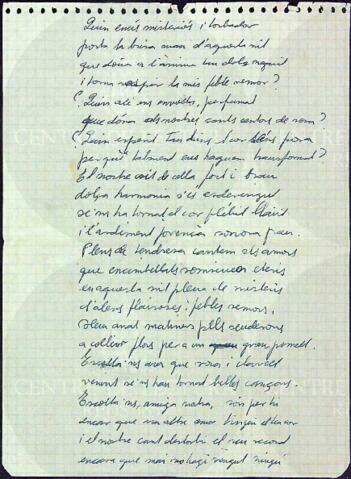 Quin encís misteriós i torbador
porta la brisa suau d'aquesta nit
que dóna a l'ànima un dolç neguit
i torna la més feble remor?
¿Quin alè ens envolta, perfumat
que dóna als nostres cants sentor de rosa?
¿Quin esperit tan dins el cor
per què talment ens haguem transformat?
El nostre crit de colla, fort i brau
dolça harmonia s'és esdevingut
se'ns ha tornat el cor flèbil llaüt
i l'ardiment jovençà sonora pau.
Plens de tendresa cantem els amors
que encimbellats somniem
en aquesta nit plena de misteris
d'alens flairosos i febles remors.
Hem anat
a collir flors per a un gran pomell.
Escolta'ns ara que roses i clavell
venint se'ns han tornat belles cançons.
Escolta'ns, amiga nostra, són per tu
encar que un altre amor tinguis
i el nostre cant destorbi el seu record
encara que mai no hagi vingut ningú